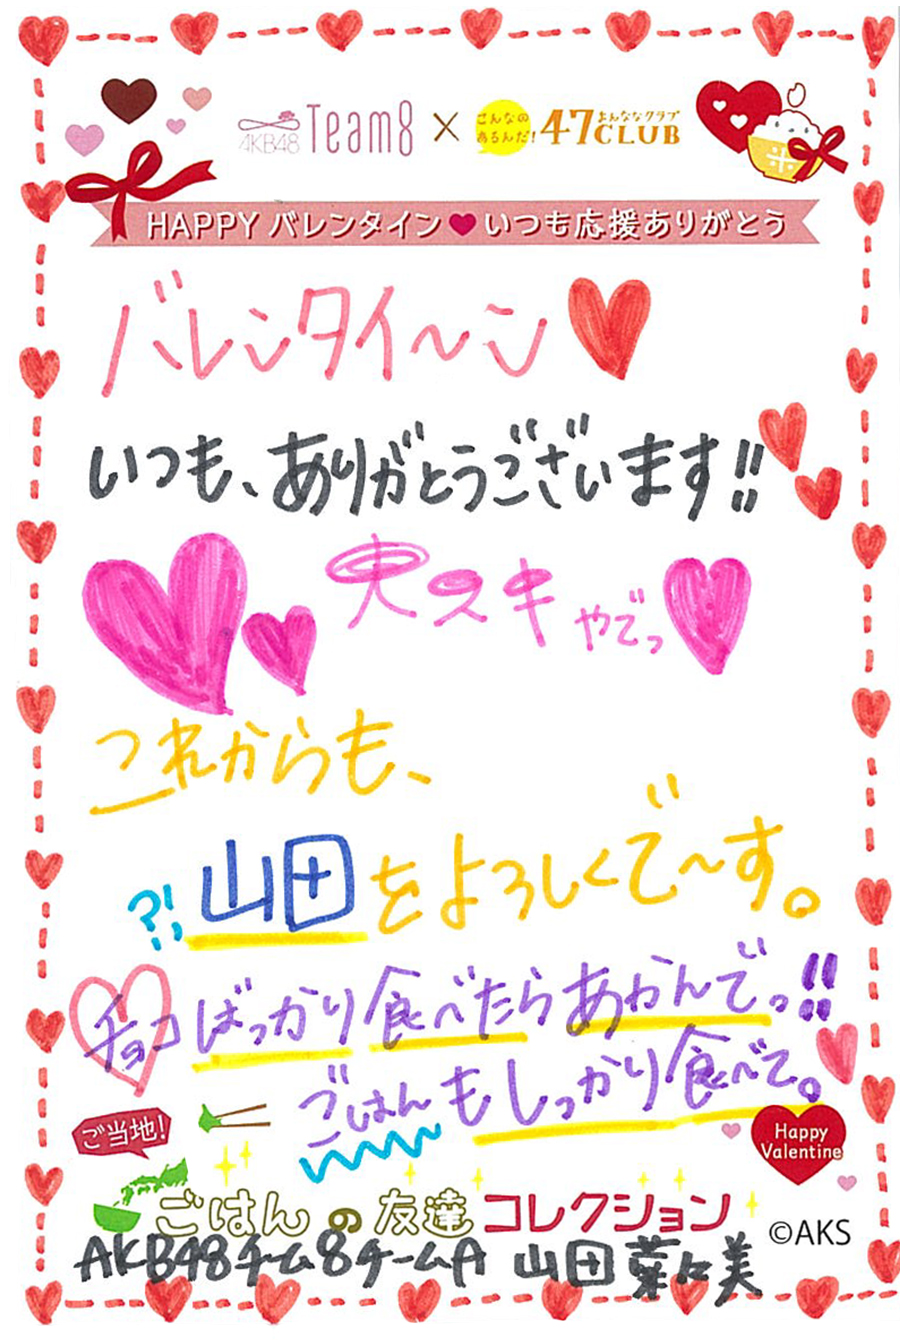 AKB48 Team8 × こんなのあるんだ! 47CLUB よんななクラブ
HAPPY バレンタイン♥いつも応援ありがとう
バレンタイ〜ン♥
いつも、ありがとうございます!!
大スキやでっ
これからも、
?! 山田をよろしくで〜す。
チョコばっかり食べたらあかんでっ!!
ごはんもしっかり食べて。
ご当地!
Happy
Valentine
ごはんの友達コレクション
©AKS
AKB48チーム8チームA 山田菜々美